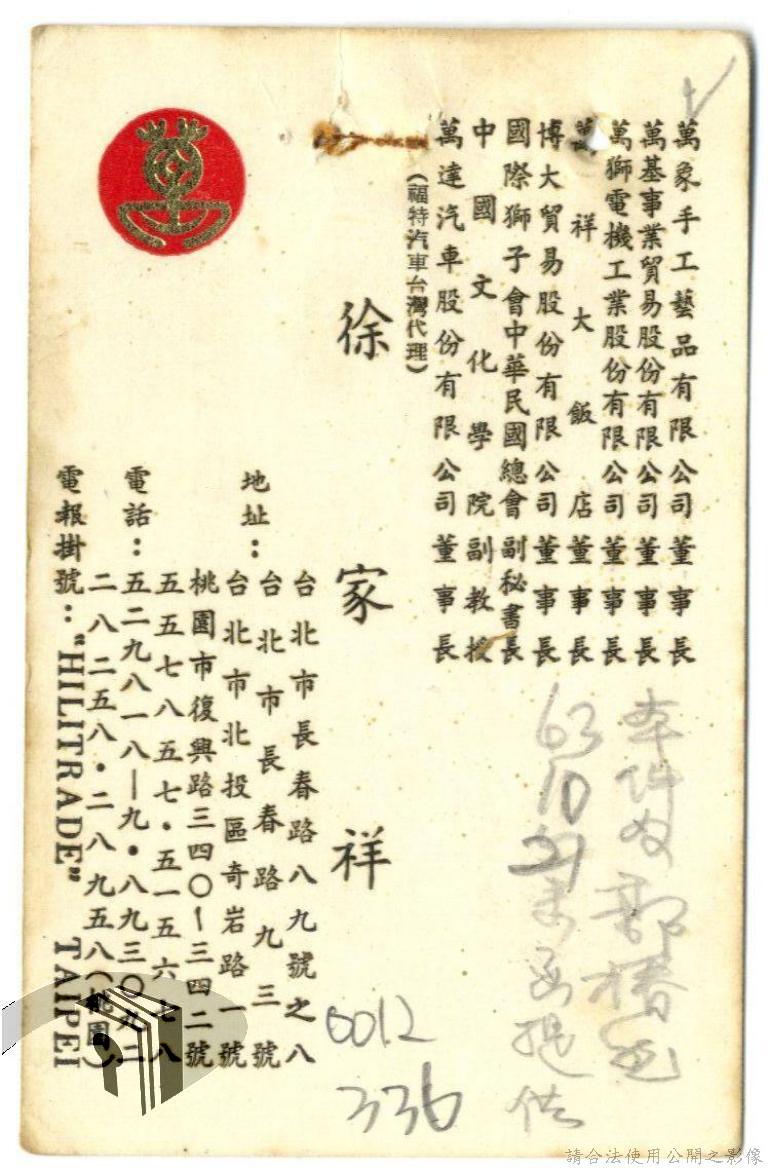 萬象手工藝品有限公司董事長
萬基事業貿易股份有限公司董事長
萬獅電機工業股份有限公司董事長
萬祥大飯店董事長
博大貿易股份有限公司董事長
國際獅子會中華民國總會副秘書長
中國文化學院副教授
萬達汽車股份有限公司董事長
(福特汽車台灣代理)
徐家祥
地址：台北市長春路八九號之八
台北市長春路九三號
台北市北投區奇岩路一號
桃園市復興路三四〇-三四二號
電話：五五七八五五七・五一五六七八
五二九八一八—九・八九三〇九二
二八二五八・二八九五八(桃園)
電報掛號："HILITRADE" TAIPEI
本件為郭椿
63
10
21來函提供
0012
336
請合法使用公開之影像